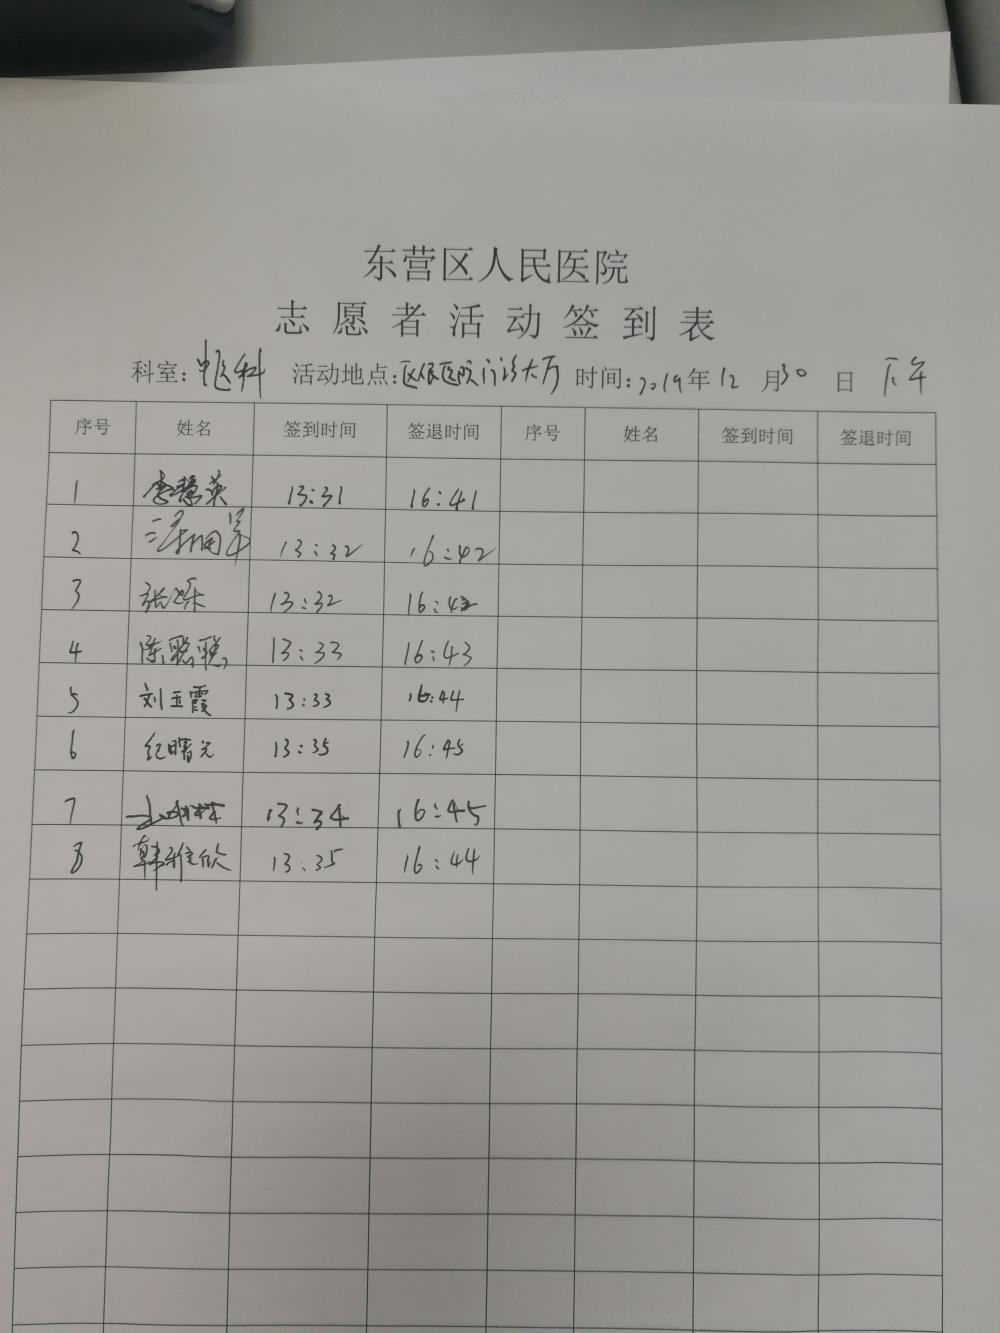 东营区人民医院
志愿者活动签到表
科室：中医科 活动地点：区人民医院门诊大厅 时间：2019年12月30日 下午
序号 姓名 签到时间 签退时间 序号 姓名 签到时间 签退时间
1 李慧英 13:31 16:41
2 13:32 16:42
3 张 乐 13:32 16:42
4 陈聪聪 13:33 16:43
5 刘玉霞 13:33 16:44
6 纪曙光 13:35 16:45
7 13:34 16:45
8 韩雅欣 13:35 16:44